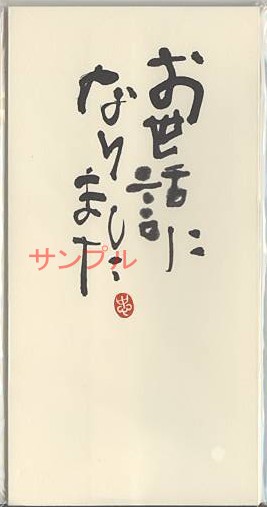 お世話に
なりました
サンプル